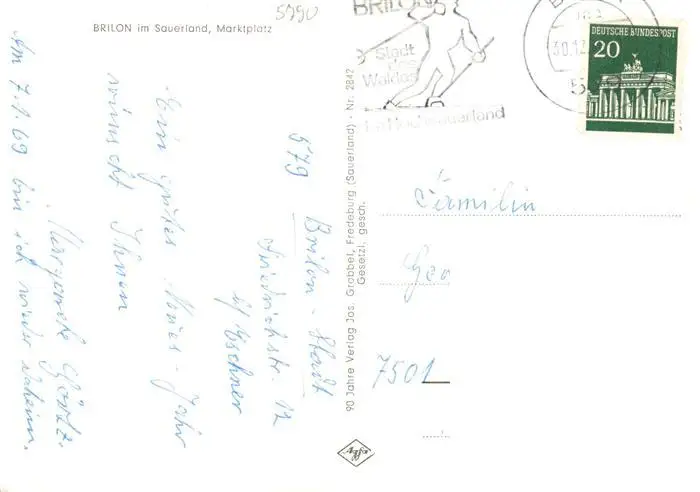 5990
BRILON im Sauerland, Marktplatz
BRILON
Stadt
des
Waldes
Im Hochsauerland
30.12
DEUTSCHE BUNDESPOST
20
579 Brilon - Stadt
Friedrichstr. 12
b/ Eschner
Ein gutes Neues - Jahr
wünscht Ihnen
Margarete
Am 7.1.69 bin ich wieder daheim.
90 Jahre Verlag Jos. Grobbel, Fredeburg (Sauerland) · Nr. 2842
Gesetzl. gesch.
Agfa
Familie
Geo
7501